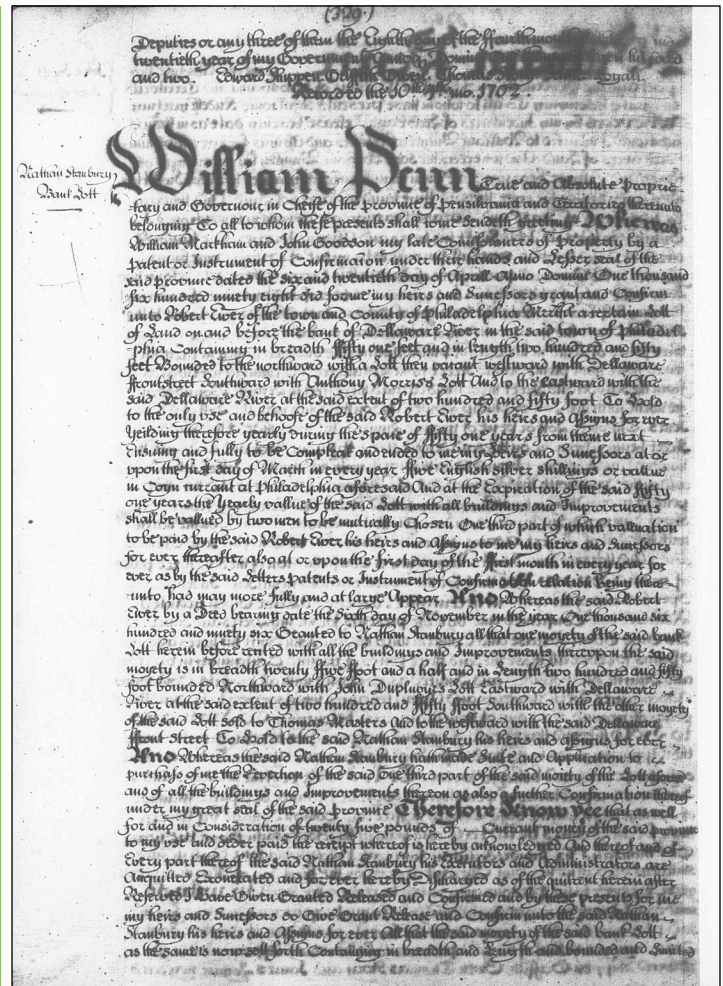 (329.)
Deputies or any three of them the Eighth day of the ffourth month
twentieth year of my Government Annoq Domini
and two. Edward Shippen Griffith Owen. Thomas Story
Recorded the 10th mo. 1702.
Nathan Stanbury
Bank Lott
William Penn True and Absolute Proprie
-tary and Governour in Cheife of the province of pensilvania and Territories thereunto
belonging To all to whom these presents shall come Sendeth greeting Whereas
William Markham and John Goodson my late Comissioners of Property by a
patent or Instrument of Confirmation under their hands and Lesser seal of the
said province dated the six and twentieth day of Aprill Anno Domini One thousand
six hundred ninety eight did for me my heirs and Successors grant and Confirm
unto Robert Ewer of the town and County of Philadelphia Mercht a certain Lott
of Land on and before the bank of Dellaware River in the said town of Philadel
-phia Containing in breadth ffifty one feet and in length two hundred and fifty
feet Bounded to the northward with a Lott then vacant westward with Dellaware
ffrontstreet Southward with Anthony Morris's Lott And to the Eastward with the
said Dellaware River at the said extent of two hundred and fifty foot To Hold
to the only use and behoofe of the said Robert Ewer his heirs and Assigns for ever
Yeilding therefore yearly during the space of ffifty one years from thence next
Ensuing and fully to be Compleat and ended to me my Heirs and Successors at or
upon the first day of March in every year ffive English silver shillings or vallue
in Coyn currant at Philadelphia aforesaid And at the Expiration of the said ffifty
one years the Yearly vallue of the said Lott with all buildings and Improvements
shall be valued by two men to be mutually Chosen One third part of which valluation
to be paid by the said Robert Ewer his heirs and Assigns to me my heirs and Successors
for ever thereafter also at or upon the first day of the ffirst month in every year for
ever as by the said Letters patents or Instrument of Confirmation relation being there-
-unto had may more fully and at large Appear. And Whereas the said Robert
Ewer by a Deed bearing date the Sixth day of November in the year One thousand six
hundred and ninety six Granted to Nathan Stanbury all that one moyety of the said bank
Lott herein before recited with all the buildings and Improvements thereupon the said
moyety is in breadth twenty ffive ffoot and a half and in Length two hundred and fifty
foot bounded Northward with John Duplouys Lott Eastward with Dellaware
River at the said extent of two hundred and ffifty ffoot Southward with the other moyety
of the said Lott sold to Thomas Masters And to the westward with the said Dellaware
ffront Street To Hold to the said Nathan Stanbury his heirs and assigns for ever
And Whereas the said Nathan Stanbury hath made Suite and Application to
purchase of me the Revertion of the said One third part of the said moyety of the Lott
and of all the buildings and Improvements thereon as also a further Confirmation thereof
under my great seal of the said province Therefore Know yee that as well
for and in Consideration of twenty five pounds of Currant money of the said province
to my use and order paid the receipt whereof is hereby acknowledged And thereof and of
Every part thereof the said Nathan Stanbury his Executors and Administrators are
Acquitted Exonerated and for ever hereby Discharged as of the quitrent herein after
Reserved I Have Given Granted Released and Confirmed and by these presents for me
my heirs and Successors do Give Grant Release and Confirm unto the said Nathan
Stanbury his heirs and Assigns for ever All that the said moyety of the said bank Lott
as the same is now sett forth Containing in breadth and Length and bounded and limited